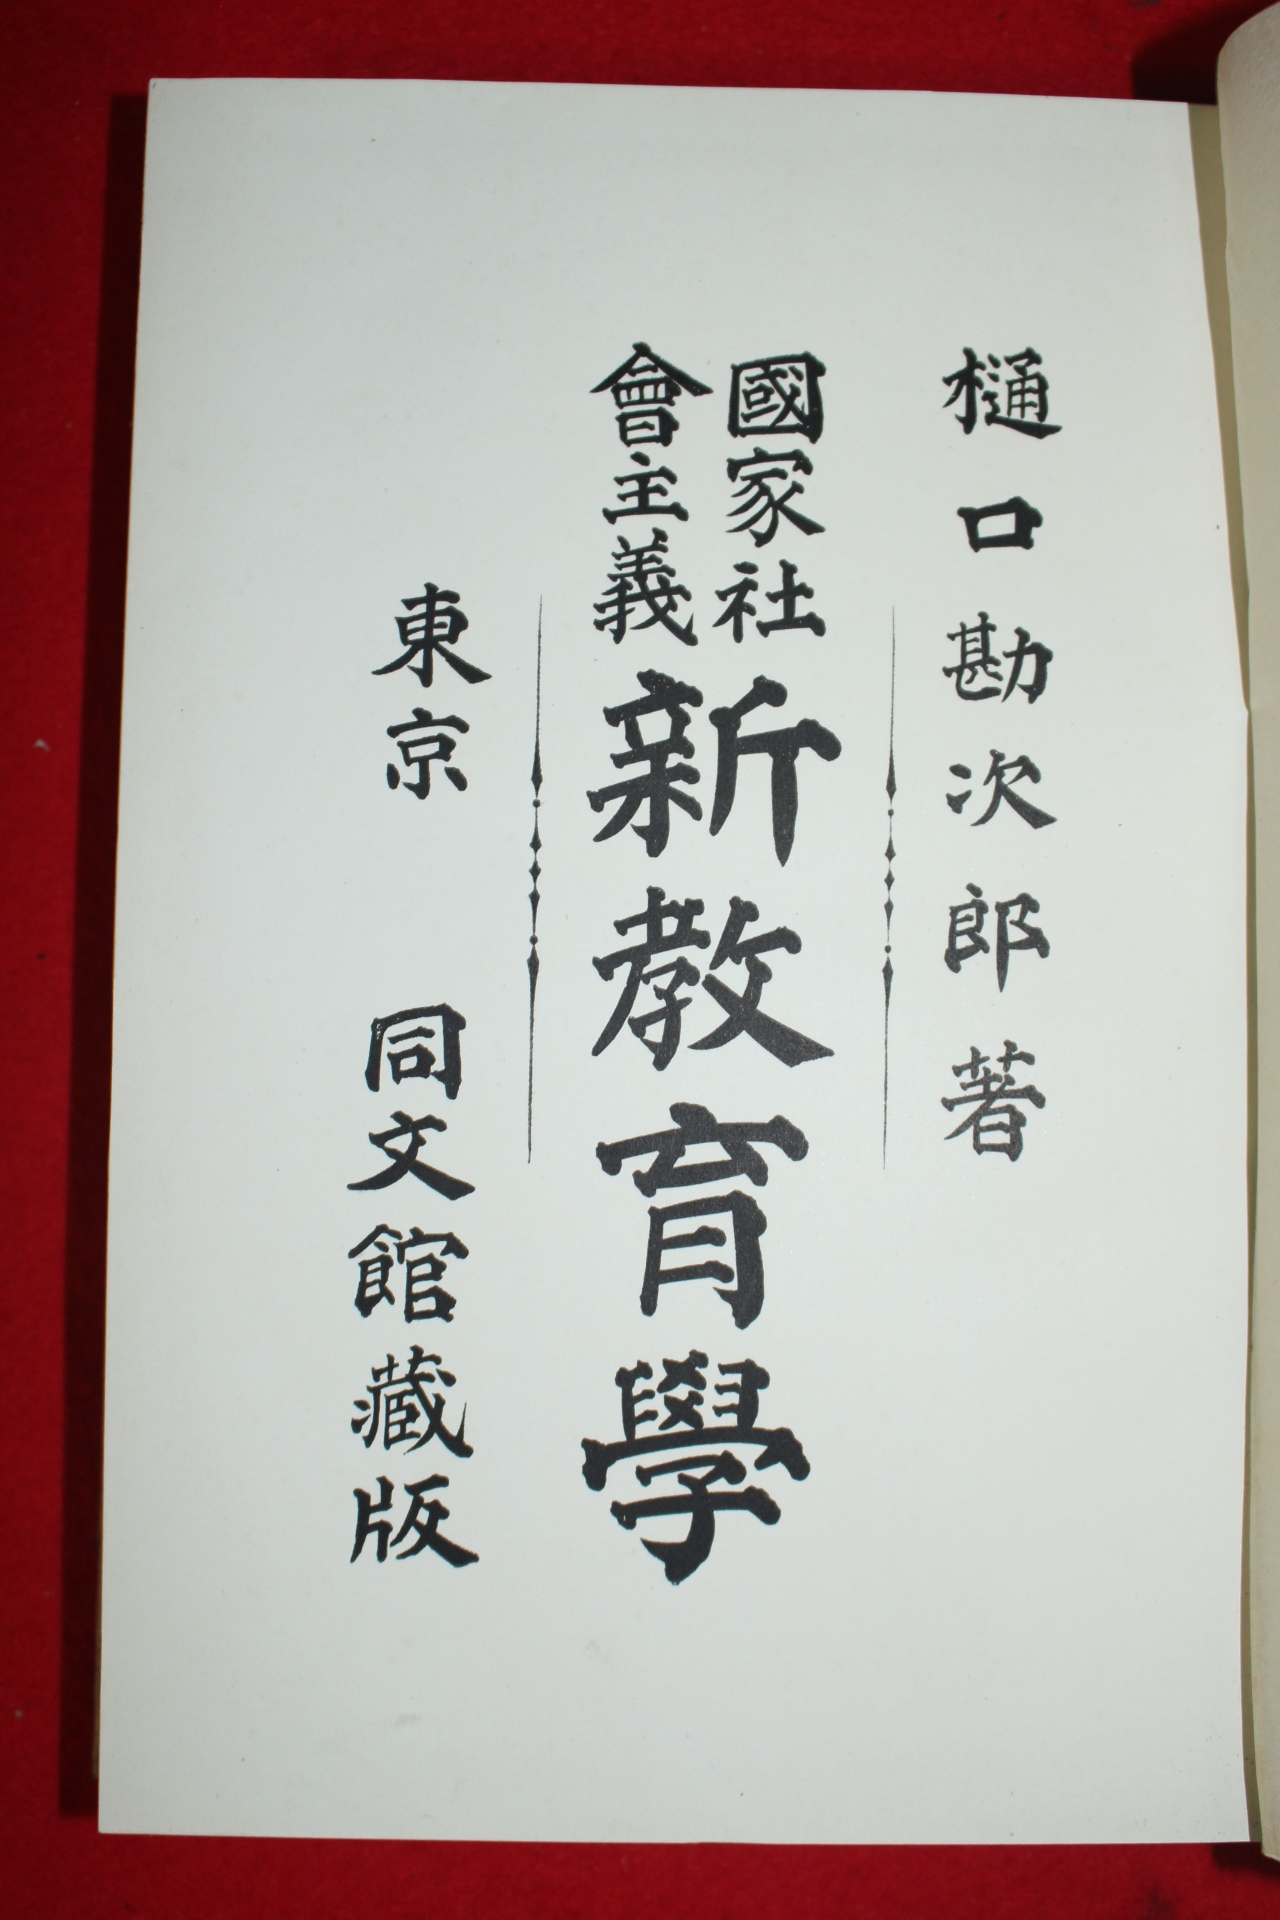 樋口勘次郎著
國家社
會主義
新教育學
東京 同文館藏版